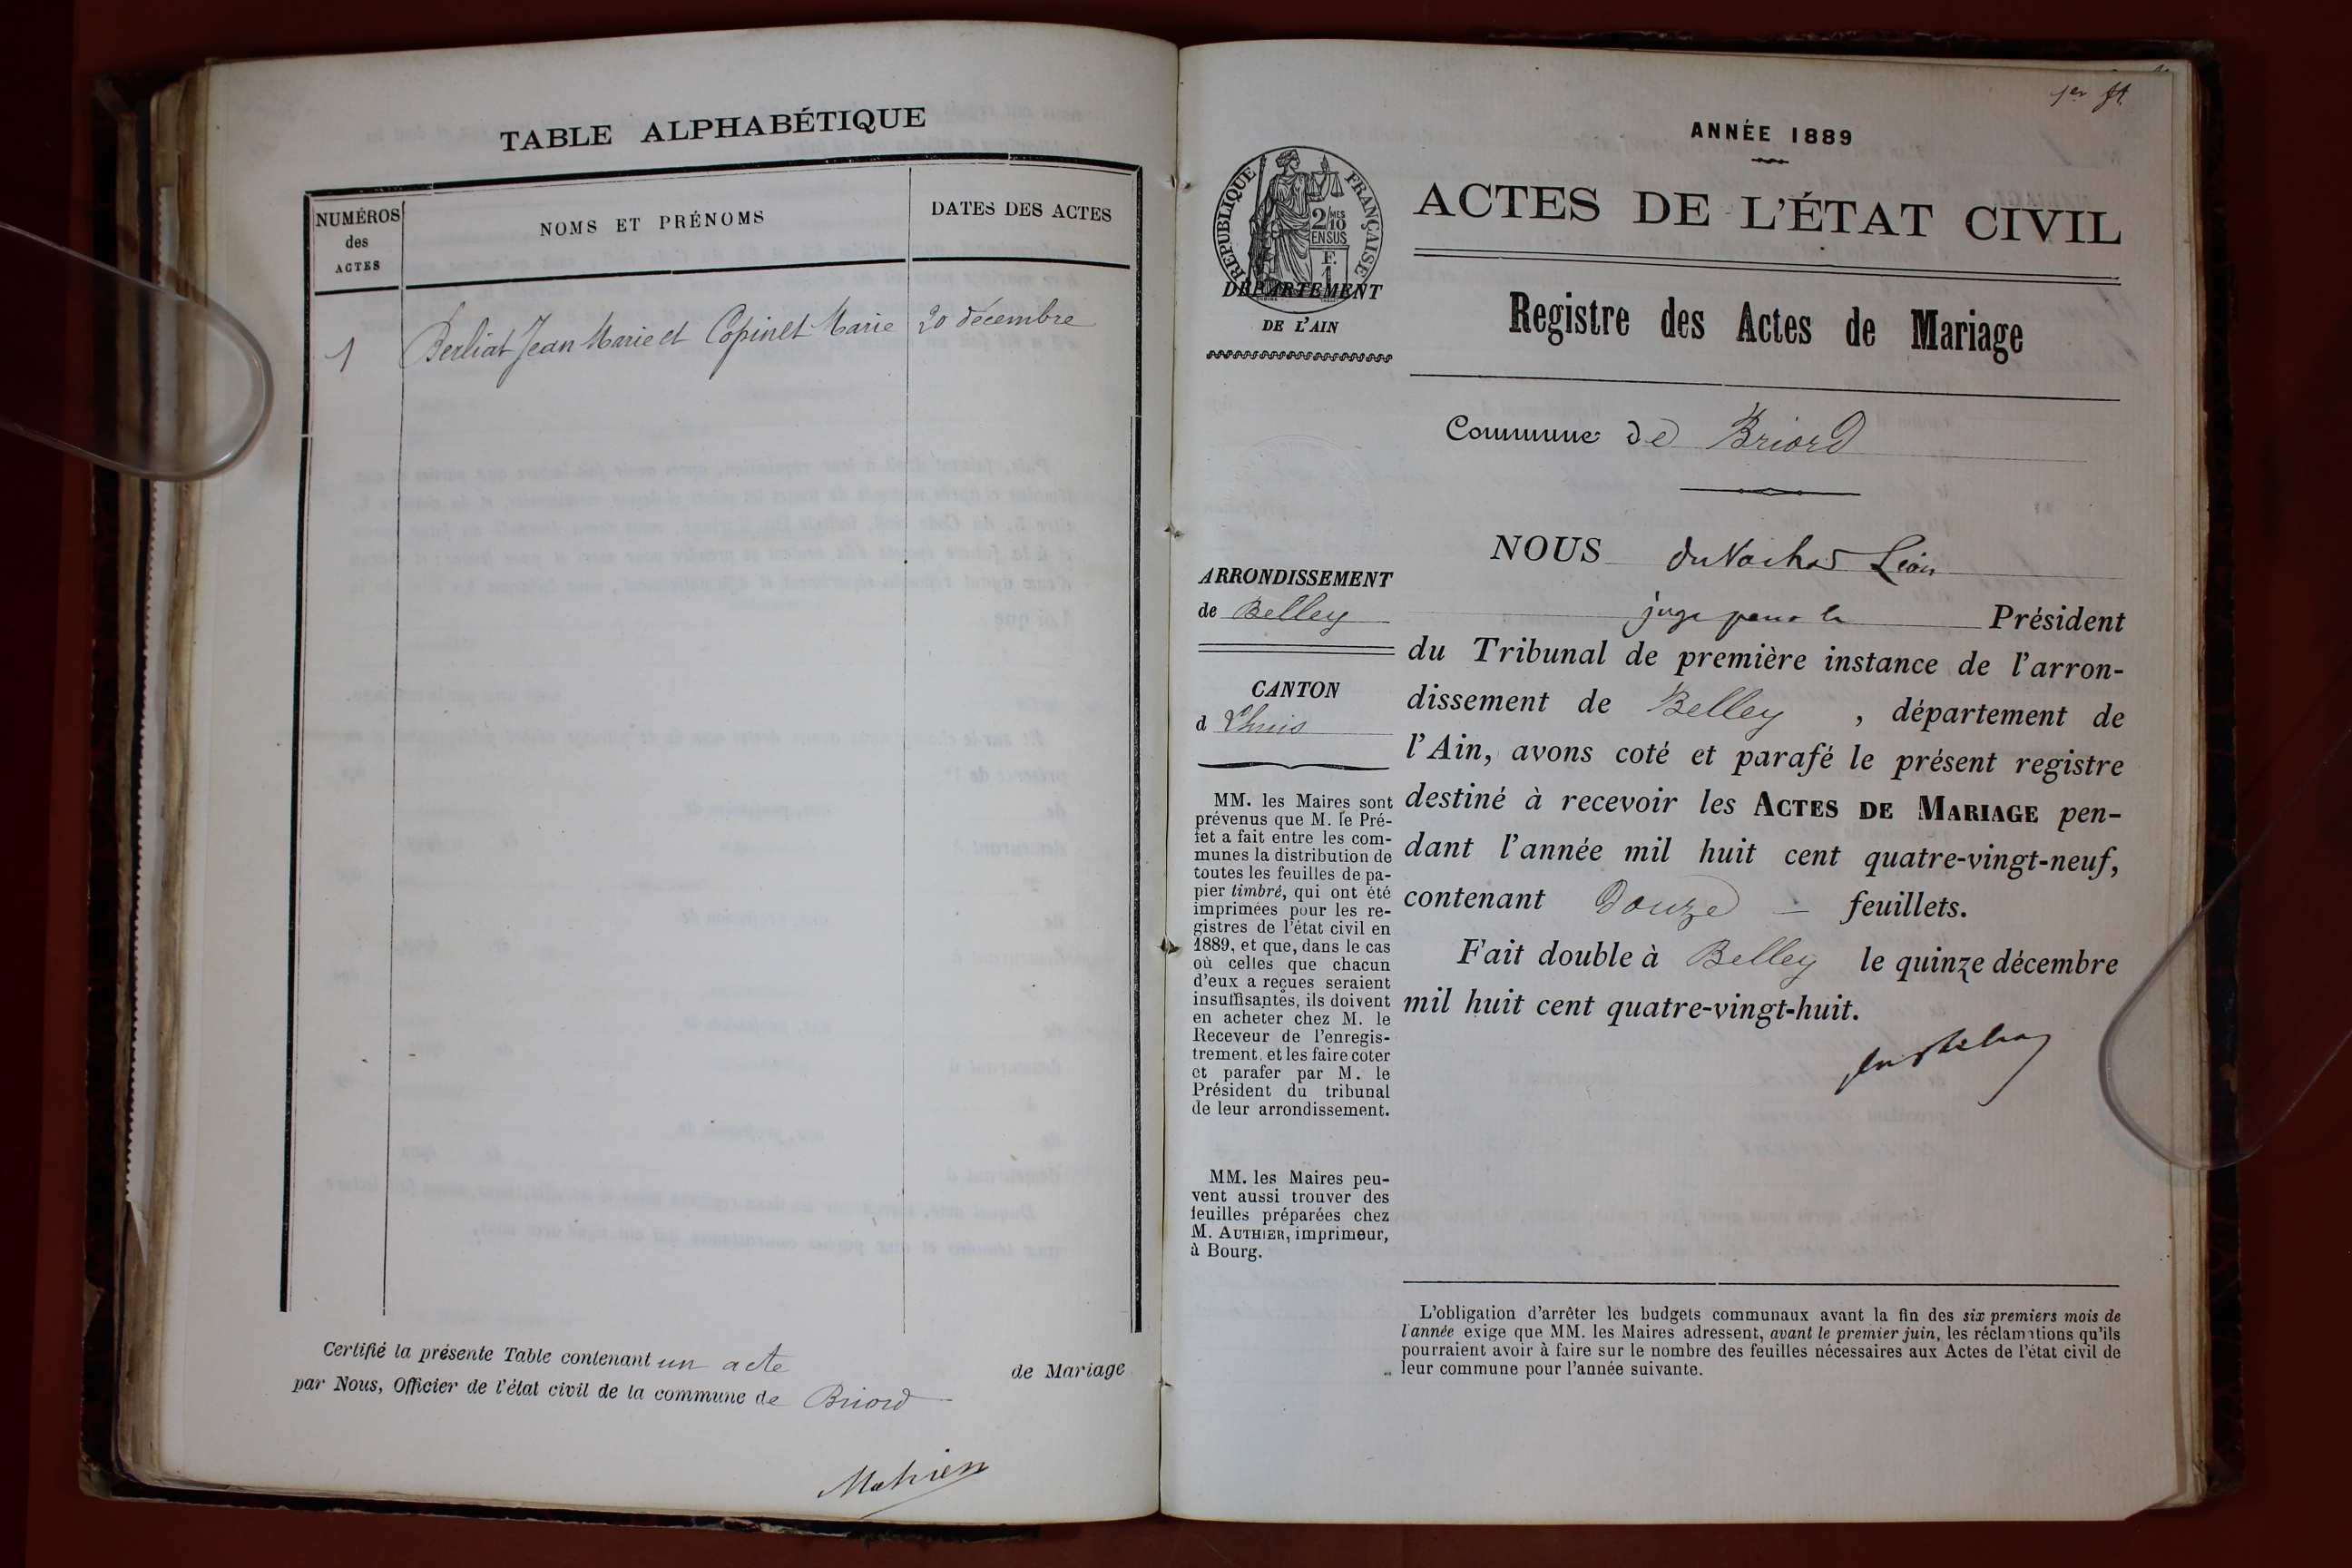 TABLE ALPHABÉTIQUE
NUMÉROS
des
ACTES
NOMS ET PRÉNOMS
DATES DES ACTES
1
Berliat Jean Marie et Copinet Marie
20 décembre
Certifié la présente Table contenant un acte de Mariage
par Nous, Officier de l'état civil de la commune de Briord
1er ft
ANNÉE 1889
RÉPUBLIQUE FRANÇAISE
2/10
MES
EN SUS
F.
1
DÉPARTEMENT
DE L'AIN
ACTES DE L'ÉTAT CIVIL
Registre des Actes de Mariage
Commune de Briord
ARRONDISSEMENT
de Belley
CANTON
d Lhuis
MM. les Maires sont
prévenus que M. le Pré-
fet a fait entre les com-
munes la distribution de
toutes les feuilles de pa-
pier timbré, qui ont été
imprimées pour les re-
gistres de l'état civil en
1889, et que, dans le cas
où celles que chacun
d'eux a reçues seraient
insuffisantes, ils doivent
en acheter chez M. le
Receveur de l'enregis-
trement, et les faire coter
et parafer par M. le
Président du tribunal
de leur arrondissement.
MM. les Maires peu-
vent aussi trouver des
feuilles préparées chez
M. AUTHIER, imprimeur,
à Bourg.
NOUS Léon
juge pour le Président
du Tribunal de première instance de l'arron-
dissement de Belley , département de
l'Ain, avons coté et parafé le présent registre
destiné à recevoir les ACTES DE MARIAGE pen-
dant l'année mil huit cent quatre-vingt-neuf,
contenant Douze – feuillets.
Fait double à Belley le quinze décembre
mil huit cent quatre-vingt-huit.
L'obligation d'arrêter les budgets communaux avant la fin des six premiers mois de
l'année exige que MM. les Maires adressent, avant le premier juin, les réclamations qu'ils
pourraient avoir à faire sur le nombre des feuilles nécessaires aux Actes de l'état civil de
leur commune pour l'année suivante.